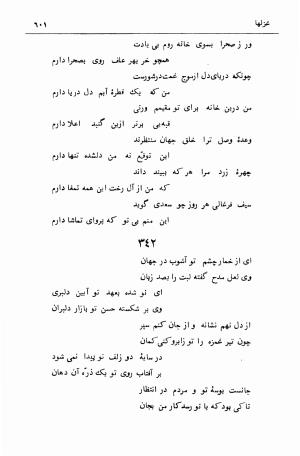 غزلها ۶۰۱
ور ز صحرا بسوی خانه روم بی یادت
همچو خر بهر علف روی بصحرا دارم
چونکه دریای دل از موج غمت در شورست
من که یک قطرهٔ آبم دل دریا دارم
من درین خانه برای تو مقیمم ورنی
قبه‌یی برتر ازین گنبد اعلا دارم
وعدهٔ وصل ترا خلق جهان منتظرند
این توقع نه من دلشده تنها دارم
چهرهٔ زرد مرا هر که ببیند داند
که من از آل رخت این همه تمغا دارم
سیف فرغانی هر روز چو سعدی گوید
این منم بی تو که پروای تماشا دارم
۳۴۲
ای از خمار چشم تو آشوب در جهان
وی لعل مدح گفته لبت را بصد زبان
ای نو شده بعهد تو آیین دلبری
وی بر شکسته حسن تو بازار دلبران
از دل نهم نشانه و از جان کنم سپر
چون تیر غمزه را تو ز ابرو کنی کمان
در سایهٔ دو زلف تو پیدا نمی شود
بر آفتاب روی تو یک ذره آن دهان
جانست بوسهٔ تو و مردم در انتظار
تا کی بود که با تو رسد کار من بجان